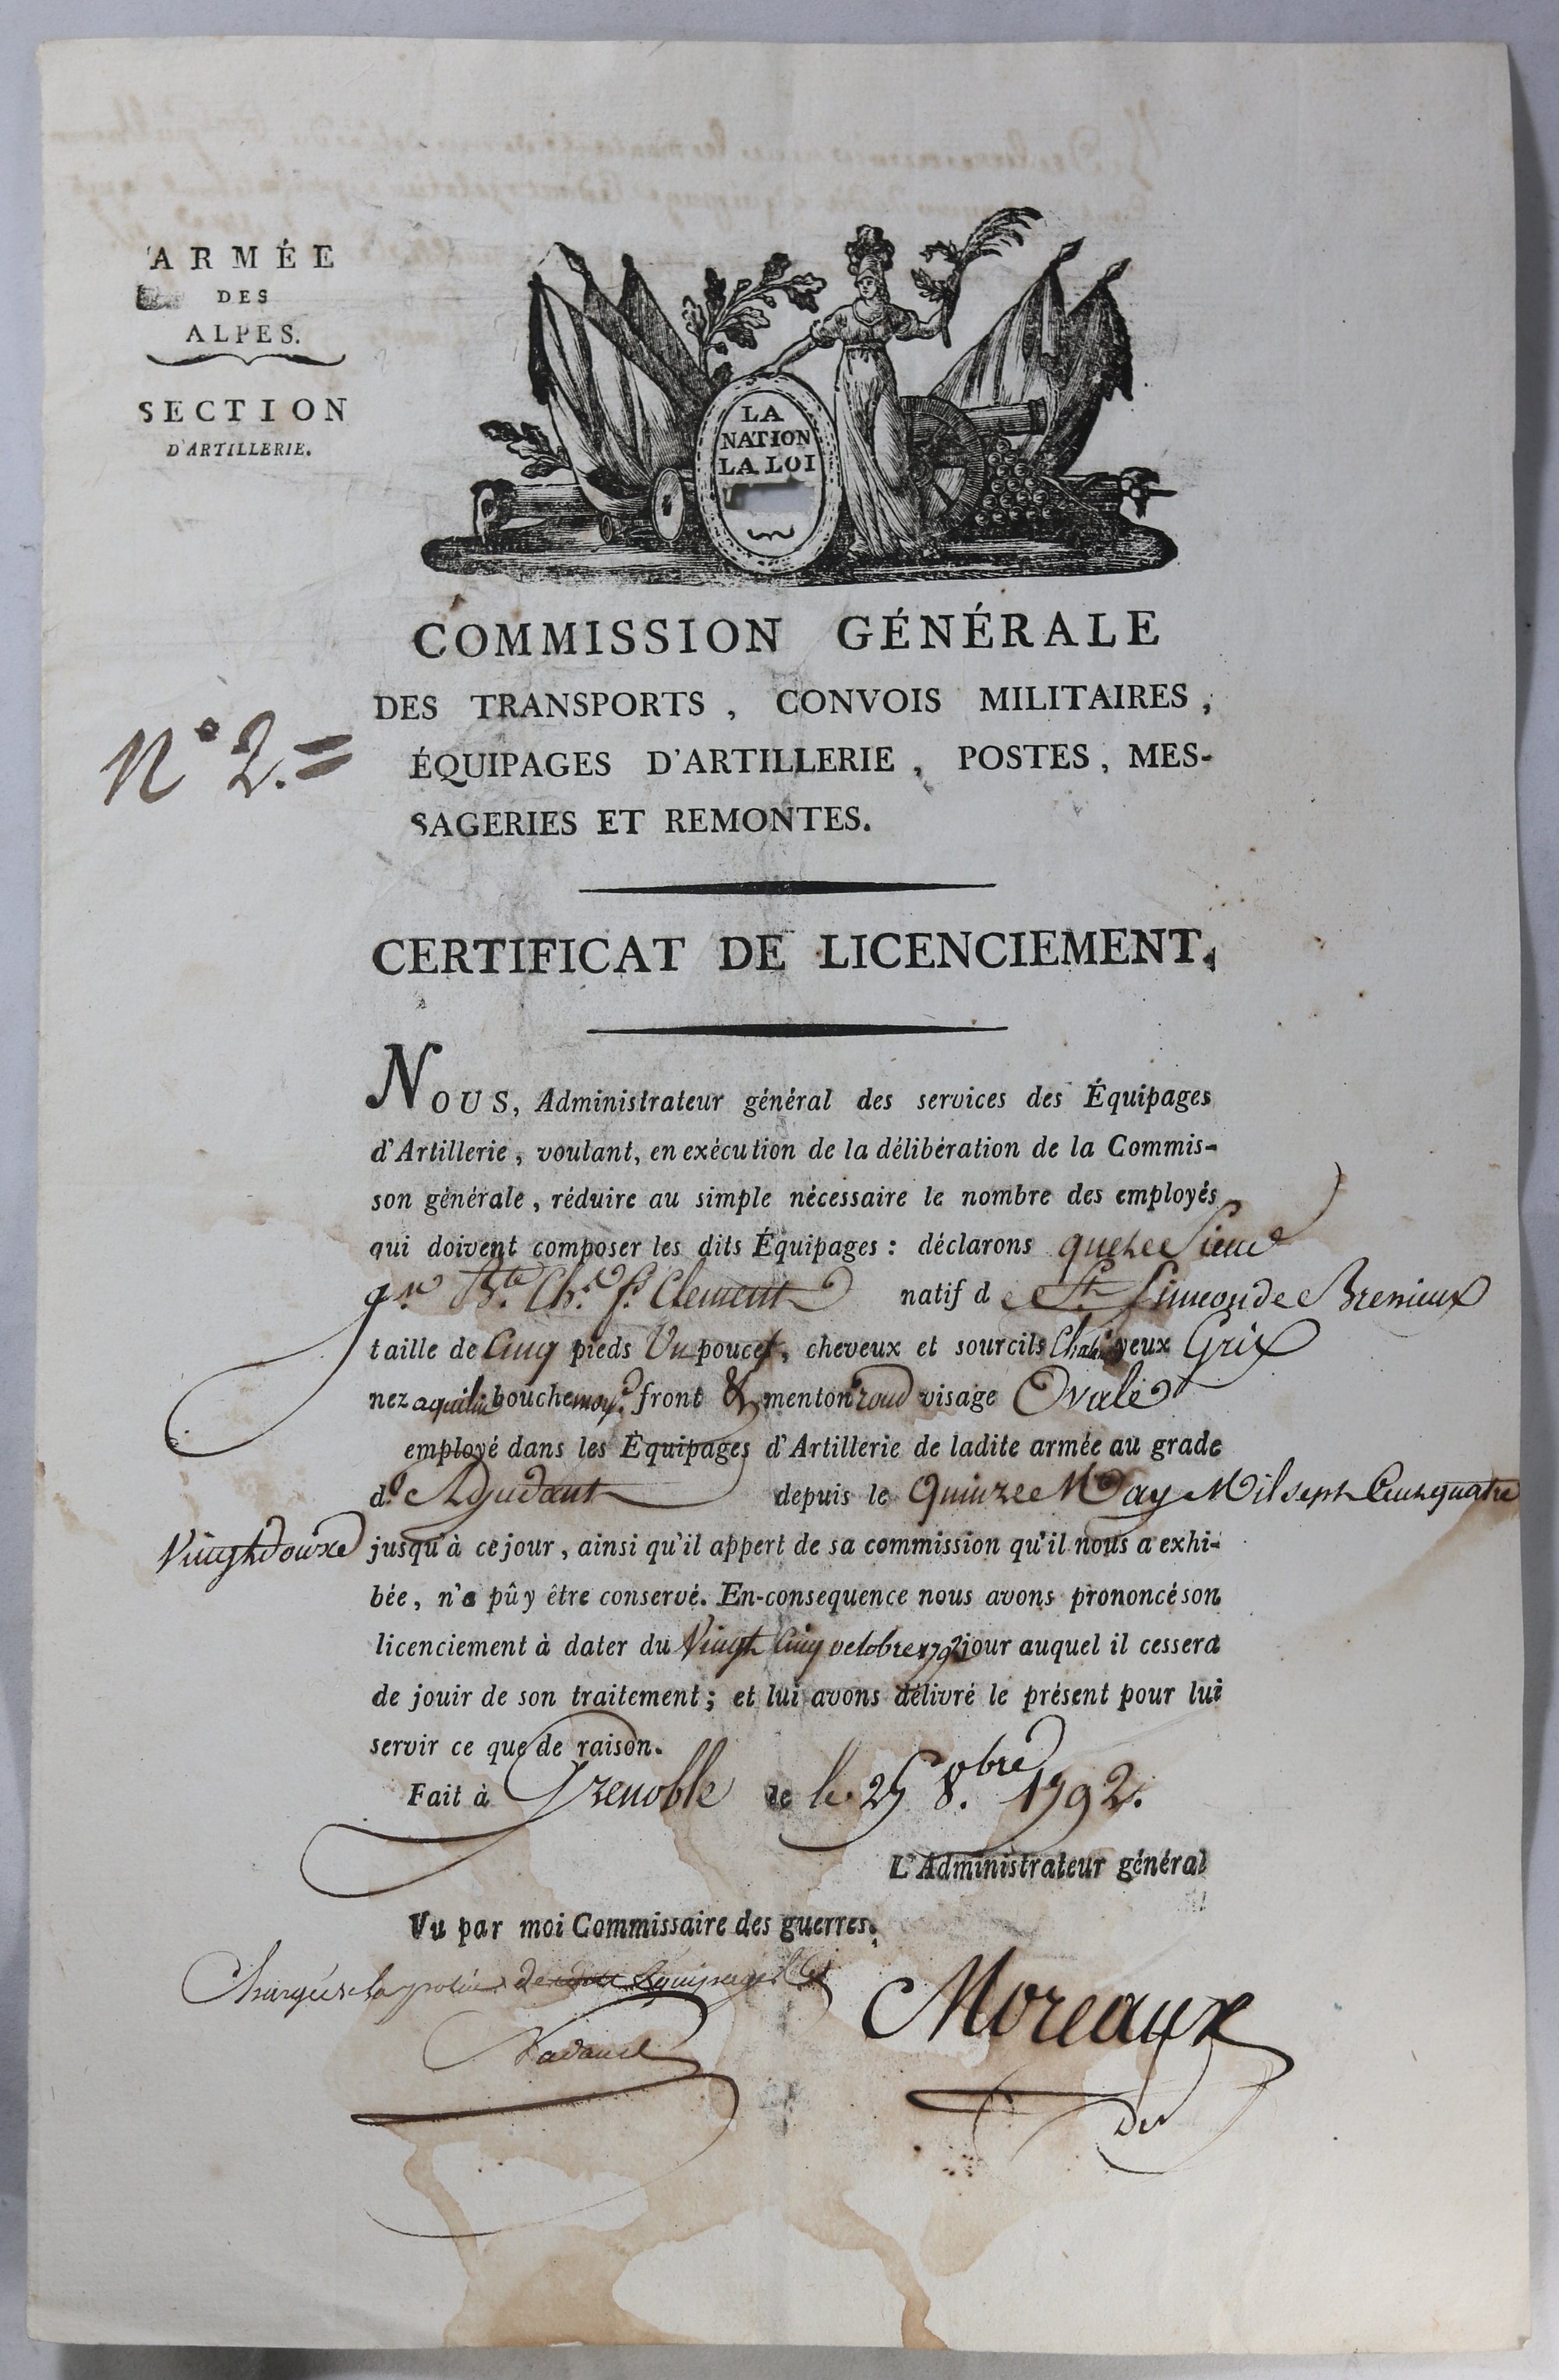 ARMÉE
DES
ALPES.
SECTION
D'ARTILLERIE.
LA
NATION
LA LOI
N° 2.=
COMMISSION GÉNÉRALE
DES TRANSPORTS, CONVOIS MILITAIRES,
ÉQUIPAGES D'ARTILLERIE, POSTES, MES-
SAGERIES ET REMONTES.
CERTIFICAT DE LICENCIEMENT.
NOUS, Administrateur général des services des Équipages
d'Artillerie, voulant, en exécution de la délibération de la Commis-
son générale, réduire au simple nécessaire le nombre des employés
qui doivent composer les dits Équipages : déclarons que le Sieur
Clement natif de St. Simeon de Bresieux
taille de Cinq pieds Un pouces, cheveux et sourcils yeux Grix
nez aquilin bouche moy. front menton rond visage Ovale
employé dans les Équipages d'Artillerie de ladite armée au grade
d' Adjudant depuis le Quinze May Mil sept Cent quatre
Vingt douxe jusqu'à ce jour, ainsi qu'il appert de sa commission qu'il nous a exhi-
bée, n'a pû y être conservé. En-consequence nous avons prononcé son
licenciement à dater du Vingt Cinq octobre 1792 jour auquel il cessera
de jouir de son traitement ; et lui avons délivré le présent pour lui
servir ce que de raison.
Fait à Grenoble le le 25 8.bre 1792.
L'Administrateur général
Vu par moi Commissaire des guerres.
Chargé de la police Equipages
Moreaux